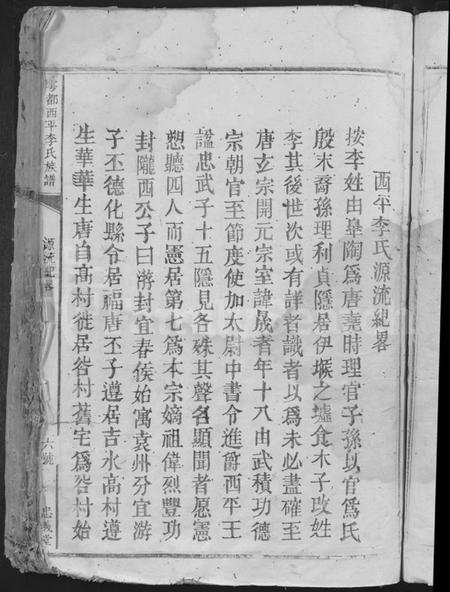 西平李氏源流紀畧
按李姓由臯陶爲唐堯時理官子孫以官爲氏
殷末裔孫理利貞隱居伊墟之墟食木子改姓
李其後世次或有詳者識者以爲未必盡確至
唐玄宗開元宗室諱晟者年十八由武積功德
宗朝官至節度使加太尉中書令進爵西平王
諡忠武子十五隱見各殊其聲名顯聞者愿憲
愬聽四人而憲居第七爲本宗嫡祖偉烈豐功
封隴西公子曰游封宜春侯始寓袁州分宜游
子丕德化縣令居福唐丕子遵居吉水高村遵
生華華生唐自高村徙居谷村舊宅爲谷村始
都西平李氏族譜
源流紀畧
六號